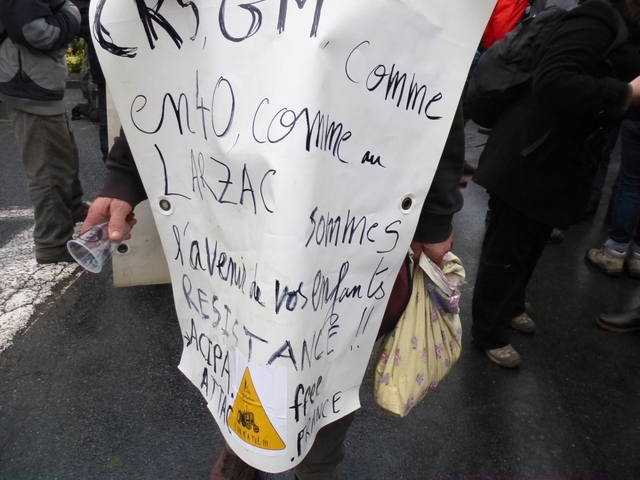 CRS, GM, comme
en 40, comme au
LARZAC
sommes
l'avenir de vos enfants
RESISTANCE !!
ACIPA
ATTAC
free
FRANCE